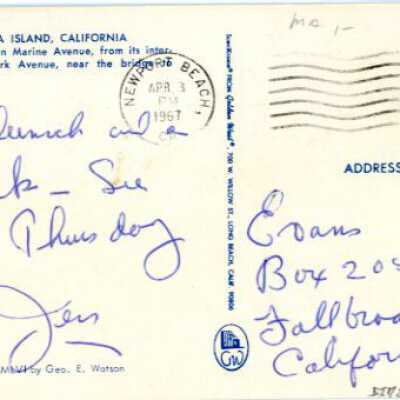 A ISLAND, CALIFORNIA
n Marine Avenue, from its inter-
rk Avenue, near the bridge to
NEWPORT BEACH,
APR 3
PM
1967
CA
See
Thursday
Jers
MLVI by Geo. E. Watson
FROM Golden West, 700 W. WILLOW ST., LONG BEACH, CALIF. 90806
GW
ma, -
ADDRESS
Evans
Box 208
Fallbroo
Califor